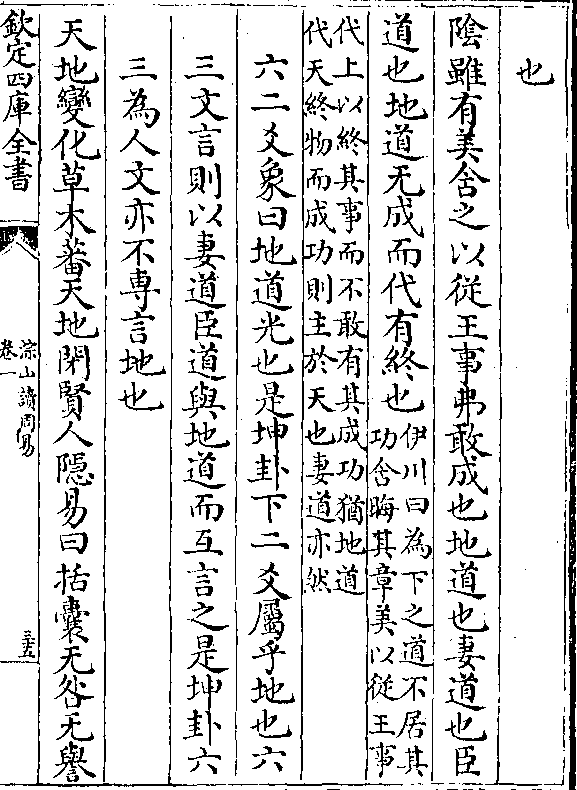 也
陰雖有美含之以從王事弗敢成也地道也妻道也臣
道也地道无成而代有終也伊川曰為下之道不居其
功含晦其章美以從王事
代上以終其事而不敢有其成功猶地道
代天終物而成功則主於天也妻道亦然
六二爻象曰地道光也是坤卦下二爻屬乎地也六
三文言則以妻道臣道與地道而互言之是坤卦六
三為人文亦不専言地也
天地變化草木蕃天地閉賢人隱易曰括囊无咎无譽
欽定四庫全書
淙山讀周易
卷一
三五